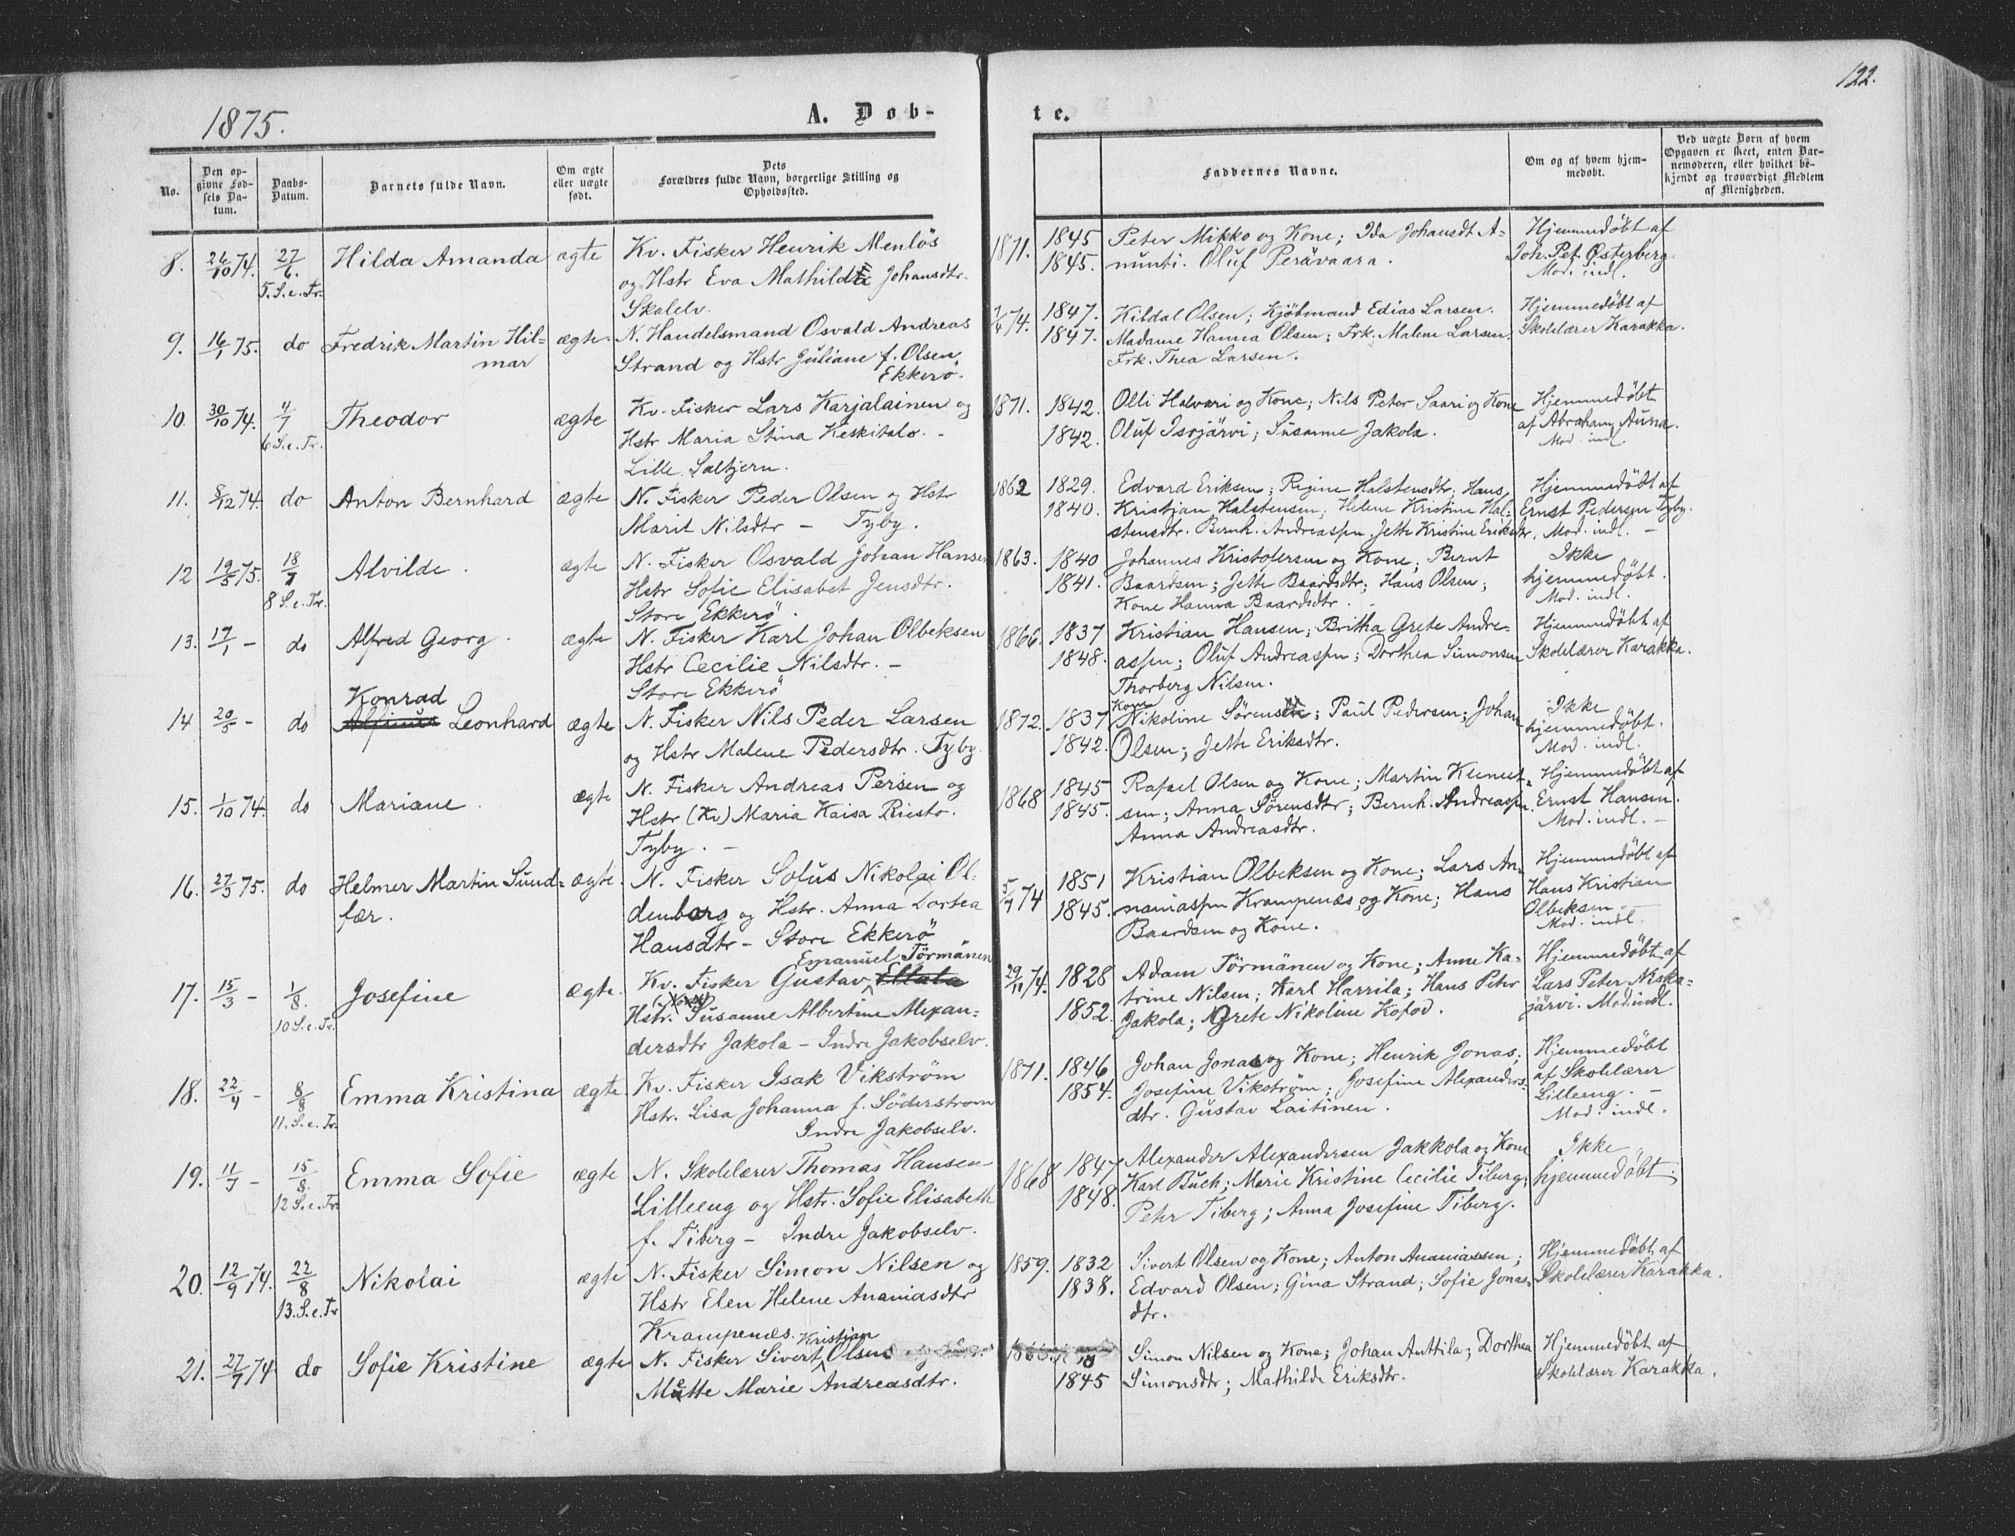 1875.
A. Døb-
te.
122.
No.
Den op-
givne Fød-
sels Da-
tum.
Daabs-
Datum.
Barnets fulde Navn.
Om ægte
eller uægte
født.
Dets
Forældres fulde Navn, borgerlige Stilling og
Opholdssted.
Faddernes Navne.
Om og af hvem hjem-
medøbt.
Ved uægte Børn af hvem
Opgaven er skeet, enten Bar-
nemoderen, eller hvilket be-
kjendt og troværdigt Medlem
af Menigheden.
8. 26/10 74. 27/6. 5. S. e. Tr. Hilda Amanda ægte
Kv. Fisker Henrik Menlös
og Hstr Eva Mathilde Johansdtr.
Skalelv.
1871. 1845
1845.
Peter Mikko og Kone; Ida Johansdt A-
nunti. Oluf Perävaara.
Hjemmedøbt af
Joh. Pet. Østerberg.
Mod. indl.
9. 16/1 75. do Fredrik Martin Hil-
mar
ægte.
N. Handelsmand Osvald Andreas
Strand og Hstr Juliane f. Olsen
Ekkerö.
74. 1847.
1847.
Kildal Olsen; Kjöbmand Edias Larsen.
Madame Hanna Olsen; Frk. Malene Larsen.
Frk. Thea Larsen.
Hjemmedøbt af
Skolelærer Karakka.
10. 30/10 74. 4/7 6 S. e. Tr. Theodor ægte
Kv. Fisker Lars Karjalainen og
Hstr Maria Stina Keskitalo. -
Lille Saltjern.
1871. 1842.
1842.
Olli Halvari og Kone; Nils Peter Saari og Kone
Oluf Isojärvi; Susanne Jakola.
Hjemmedøbt
af Abraham Auna.
Mod. indl.
11. 8/12 74. do Anton Bernhard ægte
N. Fisker Peder Olsen og Hst
Marit Nilsdtr - Tyby.
1862 1829.
1840.
Edvard Eriksen; Regine Halstensdtr; Hans
Kristian Halstensen; Helene Kristine Hal-
stensdtr. Bernh. Andreassen. Jette Kristine Eriksdtr.
Hjemmedøbt af
Ernst Pedersen Tyby.
Mod. indl. -
12 19/5 75. 18/7 8 S. e. Tr. Alvilde. ægte
N. Fisker Osvald Johan Hansen
Hstr Sofie Elisabet Jensdtr.
Store Ekkerö.
1863. 1840
1841.
Johannes Kristofersen og Kone; Bernt
Baardsen; Jette Baardsdtr; Hans Olsen;
Kone Hanna Baardsdtr.
Ikke
hjemmedøbt.
Mod. indl.
13. 17/1 - do Alfred Georg. ægte
N. Fisker Karl Johan Olbeksen
Hstr Cecilie Nilsdtr. -
Store Ekkerö
1866. 1837
1848.
Kristian Hansen; Britha Grete Andre-
assen; Oluf Andreassen; Dorthea Simonsen
Thorberg Nilsen.
Hjemmedøbt af
Skolelærer Karakka.
14 20/5 - do Konrad
Leonhard ægte
N. Fisker Nils Peder Larsen
og Hstr Malene Pedersdtr. Tyby.
1872. 1837
1842.
Kone
Nikoline Sørensen; Paul Pedersen; Johan
Olsen; Jette Eriksdtr.
Ikke
hjemmedøbt.
Mod. indl.
15. 1/10 74. do Mariane. ægte
N. Fisker Andreas Persen og
Hstr (Kv) Maria Kaisa Riesto.
Tyby. -
1868 1845
1845.
Rafael Olsen og Kone; Martin Klemet-
sen; Anna Sørensdtr; Bernh. Andreassen.
Anna Andreasdtr.
Hjemmedøbt af
Ernst Hansen.
Mod. indl. -
16. 27/3 75. do Helmer Martin Sund-
fær.
ægte.
N. Fisker Solus Nikolai Ol-
denborg og Hstr. Anna Dortea
Hansdtr - Store Ekkerö
5/7 74 1851
1845.
Kristian Olbeksen og Kone; Lars An-
naniassen Krampenæs og Kone; Hans
Baardsen og Kone.
Hjemmedøbt af
Hans Kristian
Olbeksen.
Mod. indl.
17. 15/3 - 1/8. 10 S. e. Tr. Josefine ægte.
Emanuel Törmänen
Kv. Fisker Gustav Ellala
Hstr. Susanne Albertine Alexan-
dersdtr Jakola - Indre Jakobselv.
29/11 74. 1828
1852.
Adam Törmänen og Kone; Anne Ka-
trine Nilsen; Karl Harrila; Hans Peter
Jakola; Grete Nikoline Kofod.
Hjemmedøbt af
Lars Peter Niska-
järvi. Mod. indl.
18. 22/4 - 8/8 11. S. e. Tr. Emma Kristina ægte.
Kv. Fisker Isak Vikström
Hstr. Lisa Johanna f. Söderstrom
Indre Jakobselv.
1871. 1846
1854.
Johan Jonas og Kone; Henrik Jonas;
Josefine Vikström; Josefine Alexanders-
dtr. Gustav Laitinen.
Hjemmedøbt
af Skolelærer
Lilleeng. -
Mod. indl.
19. 11/7 - 15/8. 12 S. e. Tr. Emma Sofie ægte
N. Skolelærer Thomas Hansen
Lilleeng og Hstr. Sofie Elisabeth
f. Tiberg - Indre Jakobselv.
1868 1847
1848.
Alexander Alexandersen Jakkola og Kone
Karl Buch; Marie Kristine Cecilie Tiberg;
Peter Tiberg; Anna Josefine Tiberg.
Ikke
hjemmedøbt.
20. 12/9 74. 22/8 13. S. e. Tr Nikolai ægte
N. Fisker Simon Nilsen og
Hstr Elen Helene Ananiasdtr
Krampenæs.
1859. 1832
1838.
Sivert Olsen og Kone; Anton Ananiassen;
Edvard Olsen; Gina Strand; Sofie Jonas-
dtr.
Hjemmedøbt af
Skolelærer Karakka.
21. 27/7 74 do Sofie Kristine ægte
Kristian
N. Fisker Sivert Olsen
Mette Marie Andreasdtr.
1845
Simon Nilsen og Kone; Johan Anttila; Dorthea
Simonsdtr; Mathilde Eriksdtr.
Hjemmedøbt af
Skolelærer Karakka.